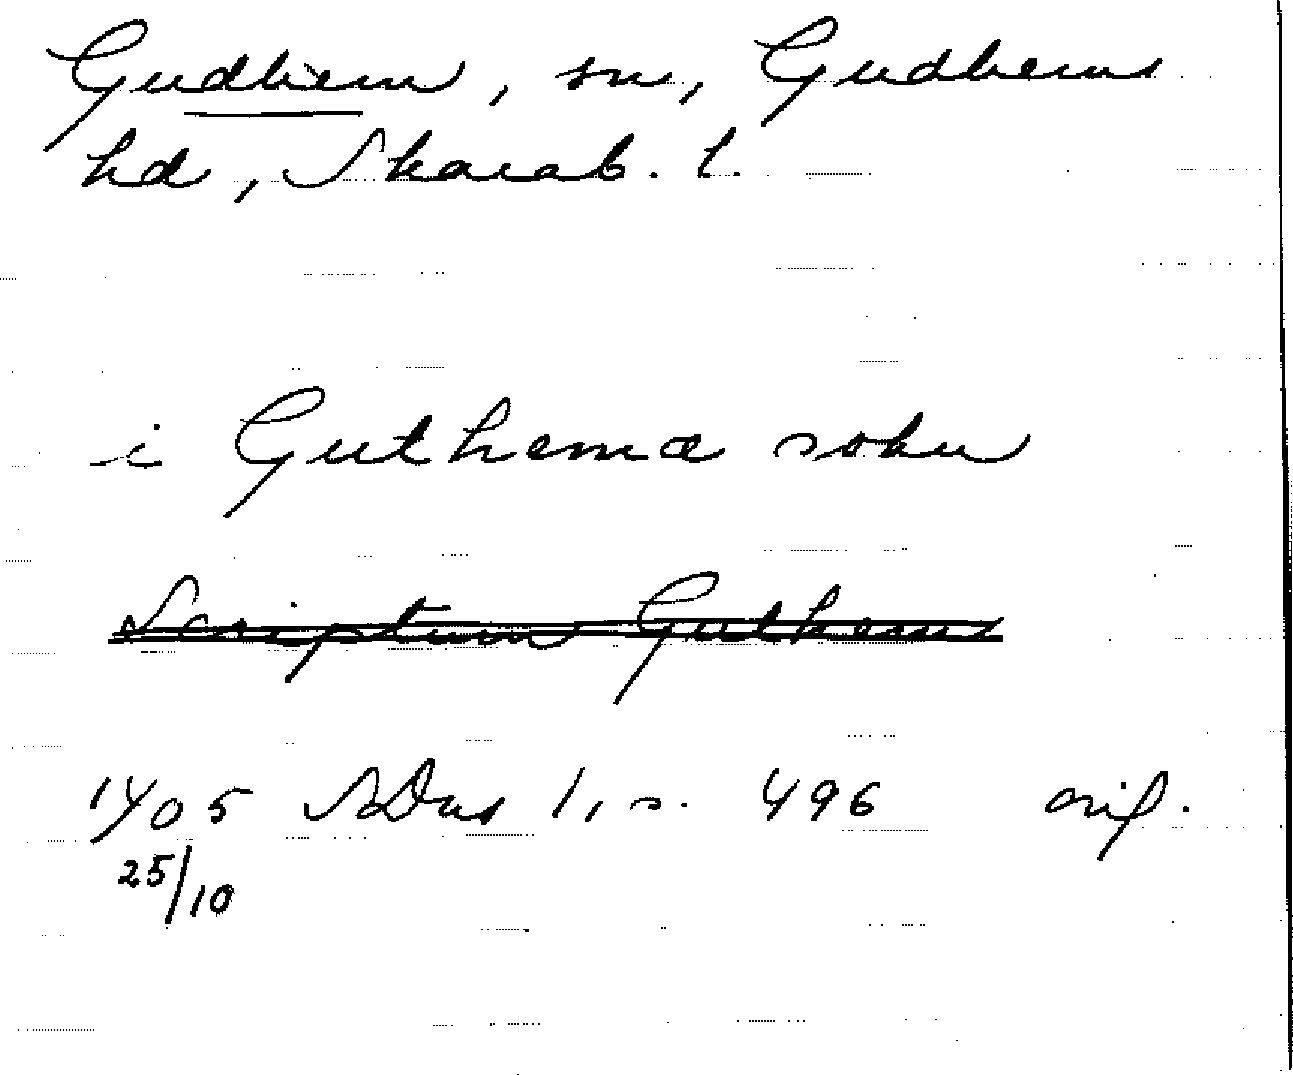 Gudhem, sn, Gudhems
hd, Skarab. l.
i Guthema sokn
Scriptum Guthems
1405 SDns 1, s. 496 orig.
25/10